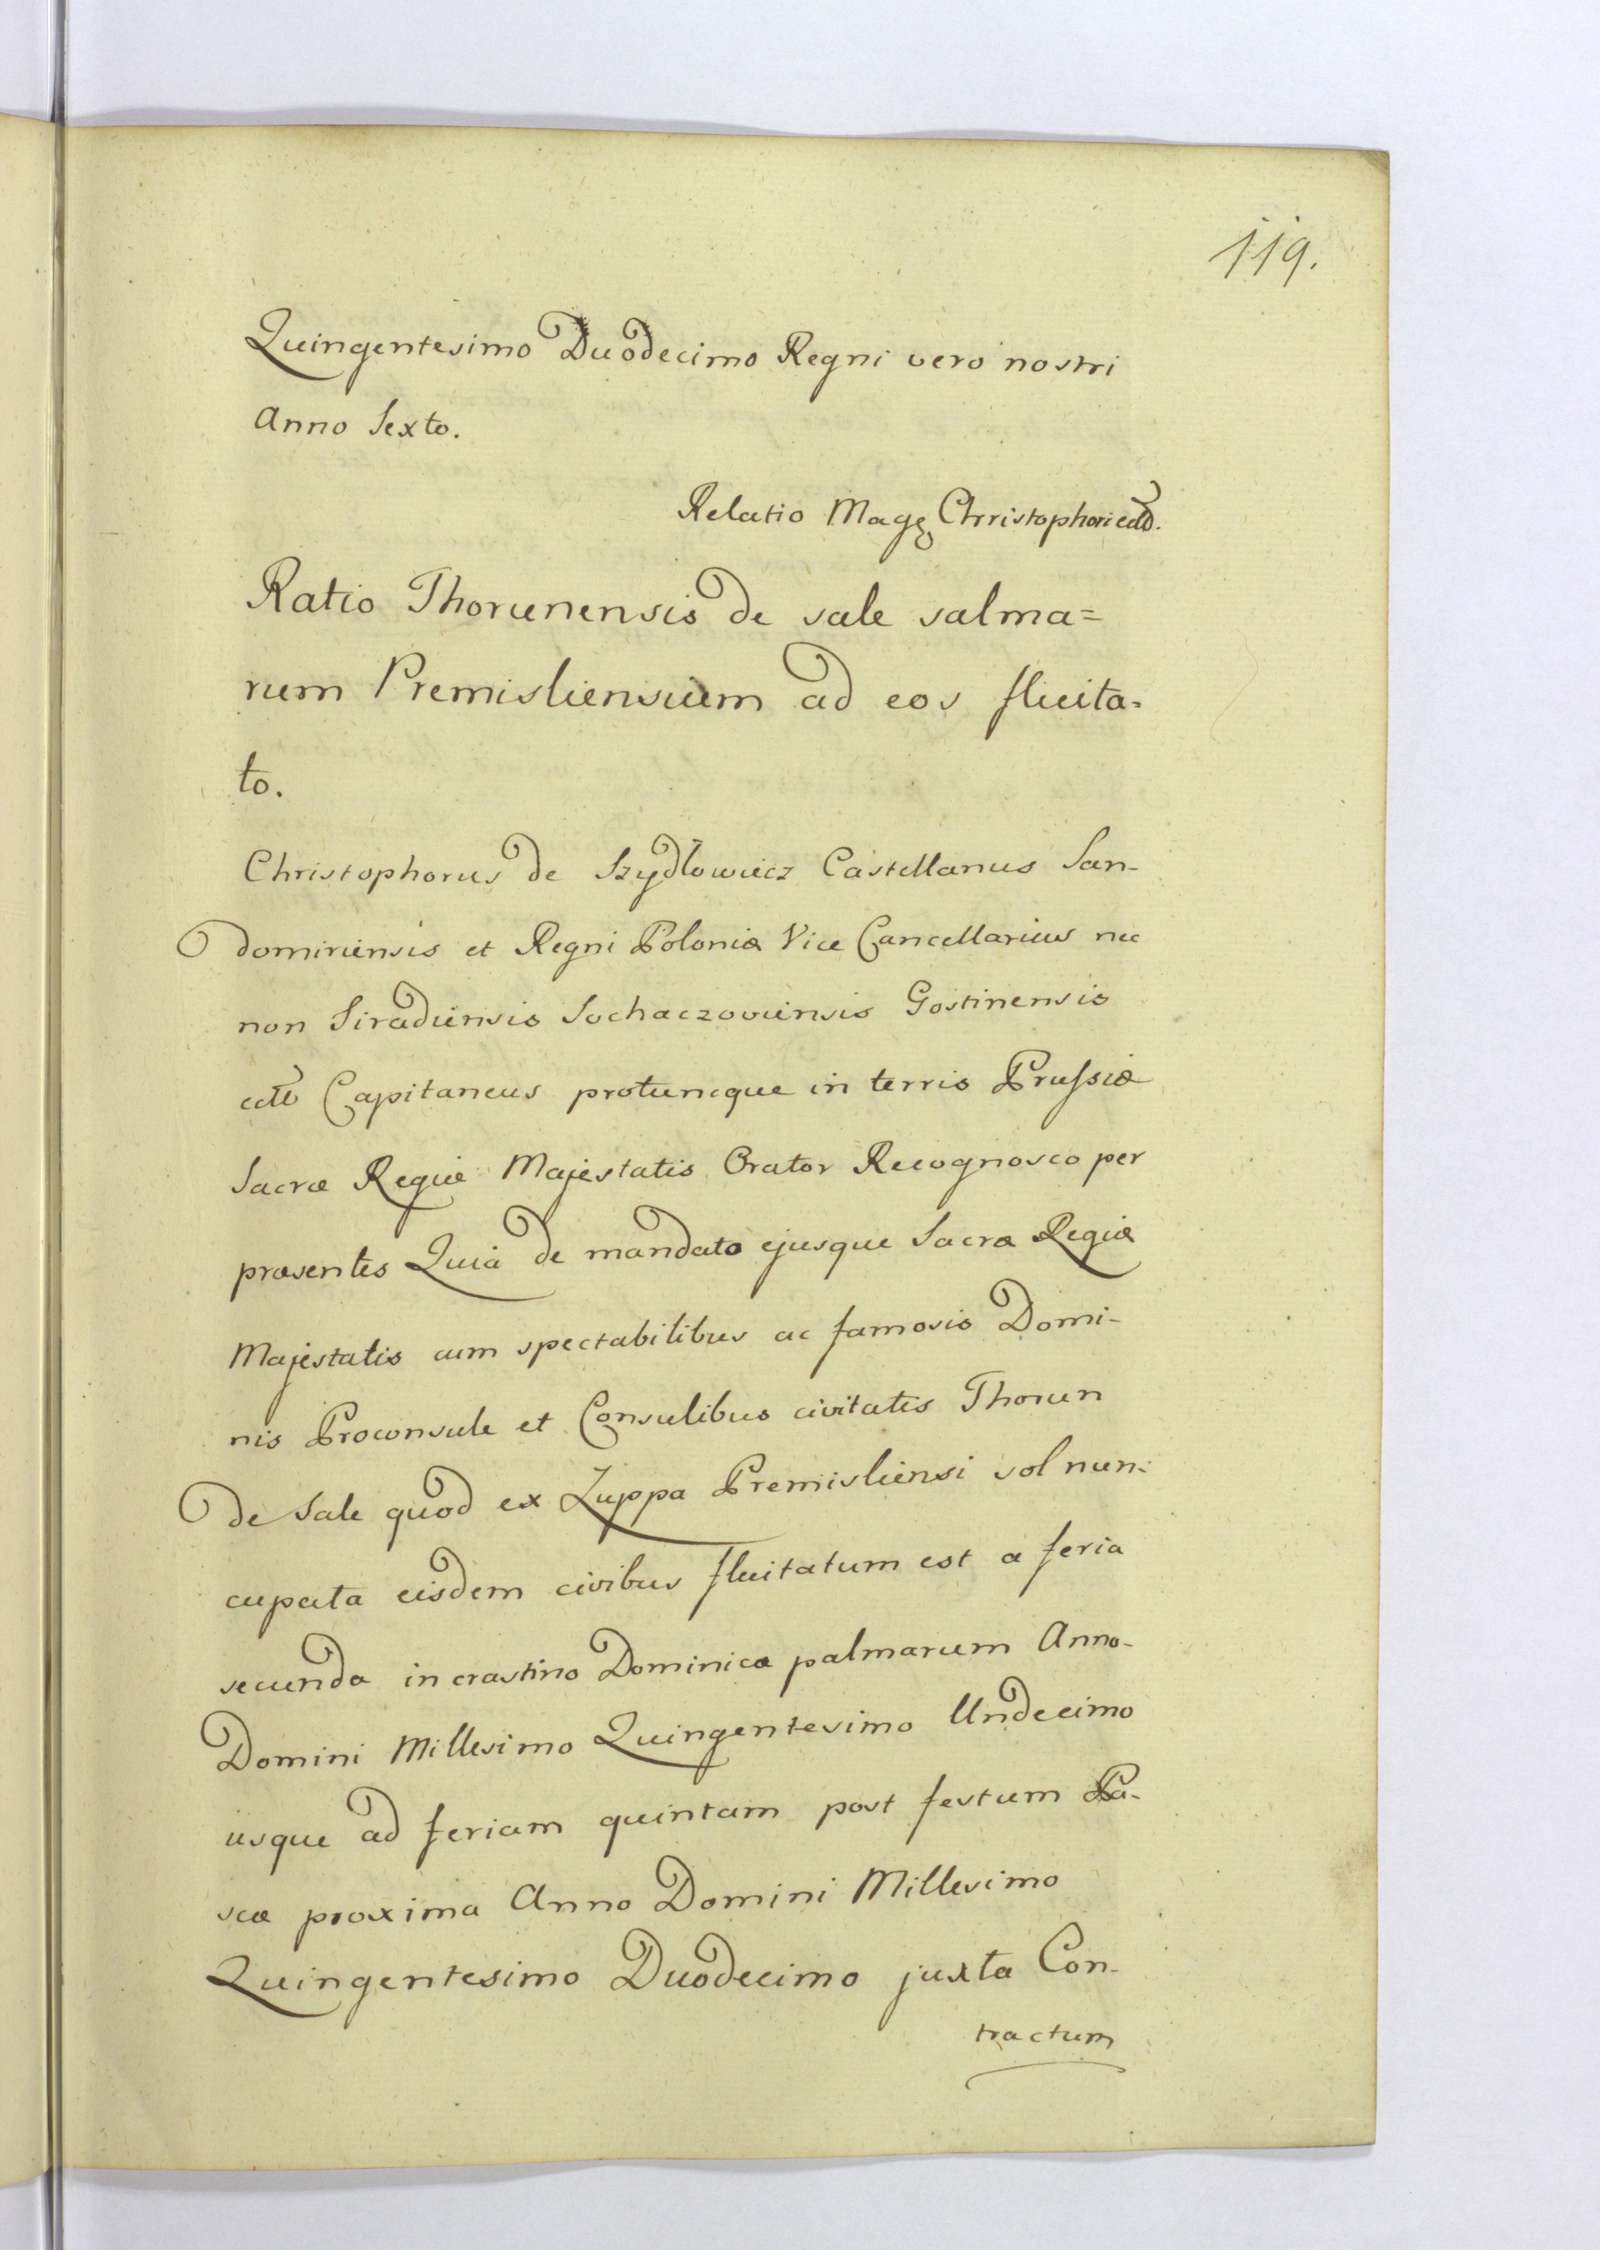 119.
Quingentesimo Duodecimo Regni vero nostri
Anno Sexto.
Relatio Magci Christophori etc.
Ratio Thorunensis de sale salma=
rum Premisliensium ad eos fluita=
to.
Christophorus de Szydlowiecz Castellanus San-
domiriensis et Regni Poloniæ Vice Cancellarius nec
non Siradiensis Sochaczoviensis Gostinensis
etc Capitaneus protuncque in terris Prussiæ
Sacræ Regiæ Majestatis Orator Recognosco per
præsentes Quia de mandato ejusque Sacræ Regiæ
Majestatis cum spectabilibus ac famosis Domi-
nis Proconsule et Consulibus civitatis Thorun
de Sale quod ex Zuppa Premisliensi sol nun=
cupata eisdem civibus fluitatum est a feria
secunda in crastino Dominicæ palmarum Anno
Domini Millesimo Quingentesimo Undecimo
usque ad feriam quintam post festum Pa-
scæ proxima Anno Domini Millesimo
Quingentesimo Duodecimo juxta Con-
tractum